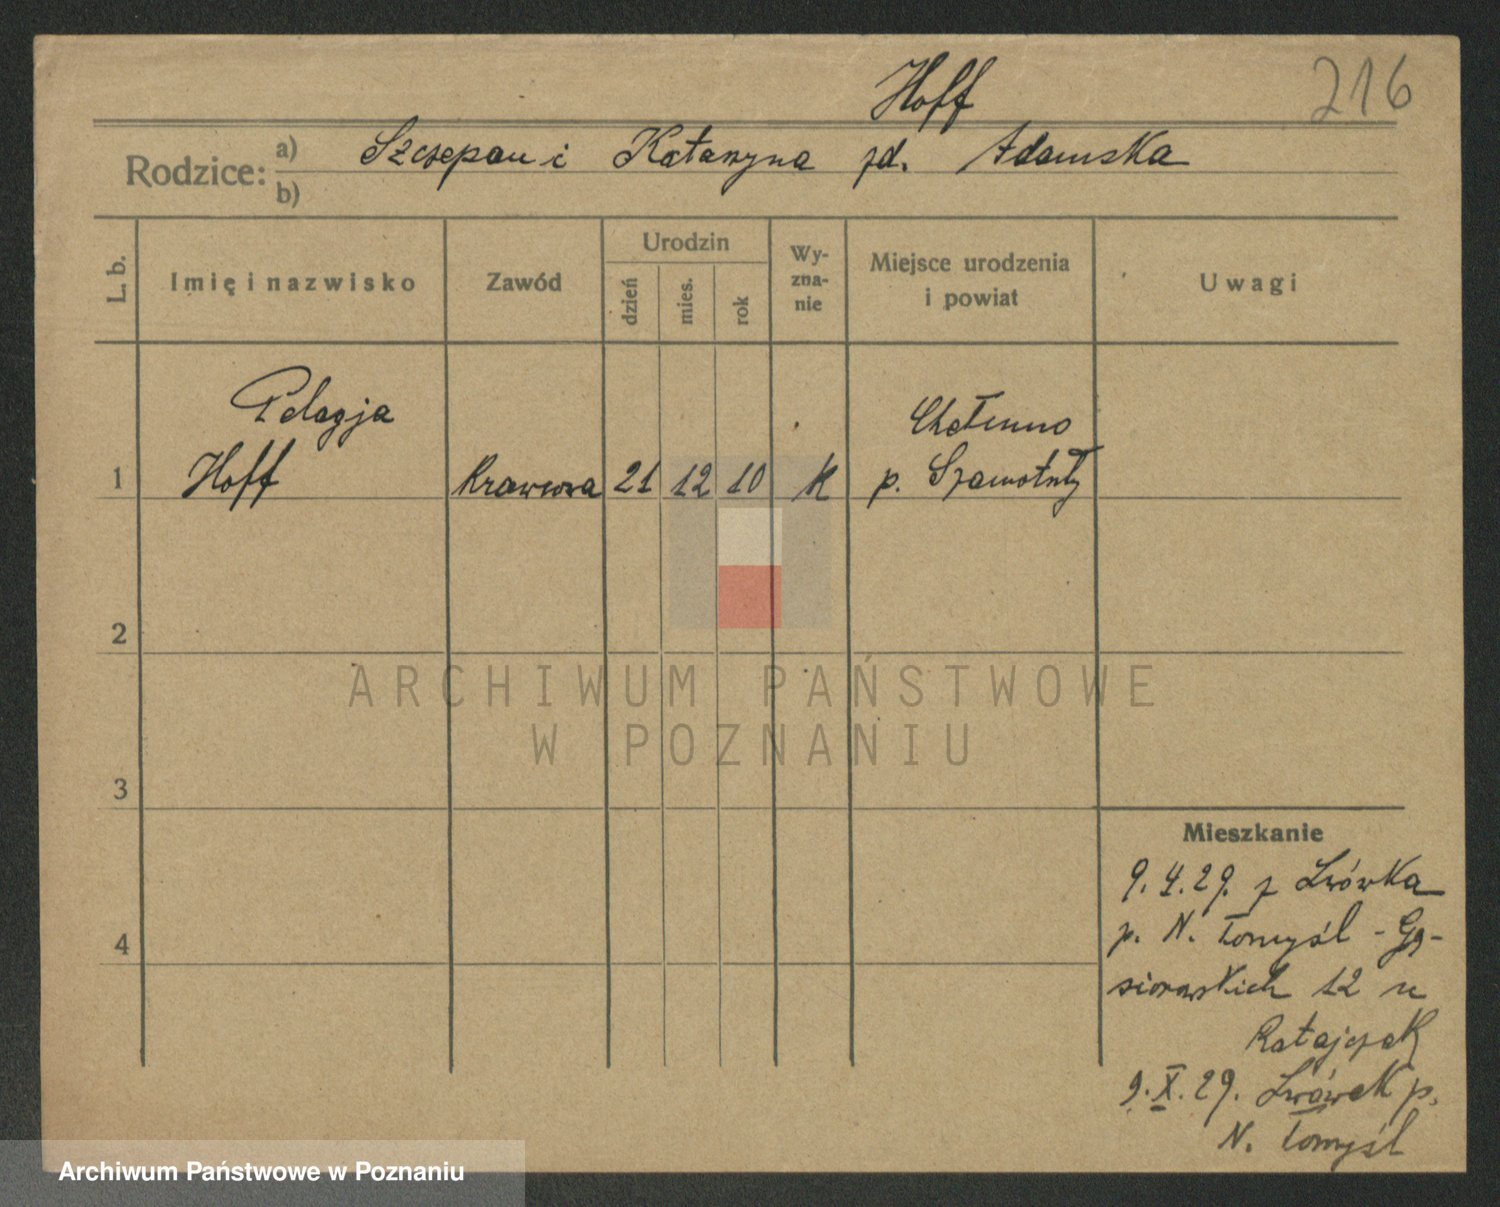 Hoff
216
Rodzice: a) Szczepan i Katarzyna zd. Adamska
b)
L. b.
Imię i nazwisko
Zawód
Urodzin
dzień
mies.
rok
Wy-
zna-
nie
Miejsce urodzenia
i powiat
Uwagi
Pelagja
Hoff
1
Krawcowa
21
12
10
K
Chełmno
p. Szamotuły
2
3
4
Mieszkanie
9.4.29. z Lwówka
p. N. Tomyśl - Gą-
siorowskich 12 u
Ratajczak
9.X.29. Lwówek p.
N. Tomyśl
ARCHIWUM PAŃSTWOWE
W POZNANIU
Archiwum Państwowe w Poznaniu